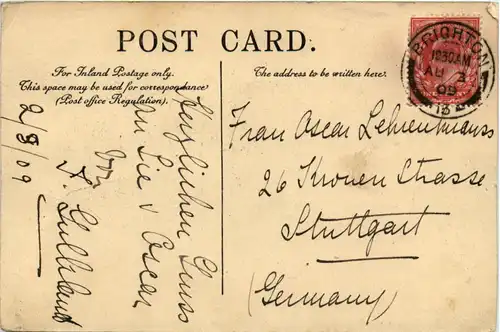 POST CARD.
For Inland Postage only.
This space may be used for correspondence
(Post office Regulation).
The address to be written here.
BRIGHTON
1030AM
AU 3
09
Herzlichen Gruss
an Sie & Oscar
von
2/8/09
Frau Oscar
26 Kronen Strasse
Stuttgart
(Germany)